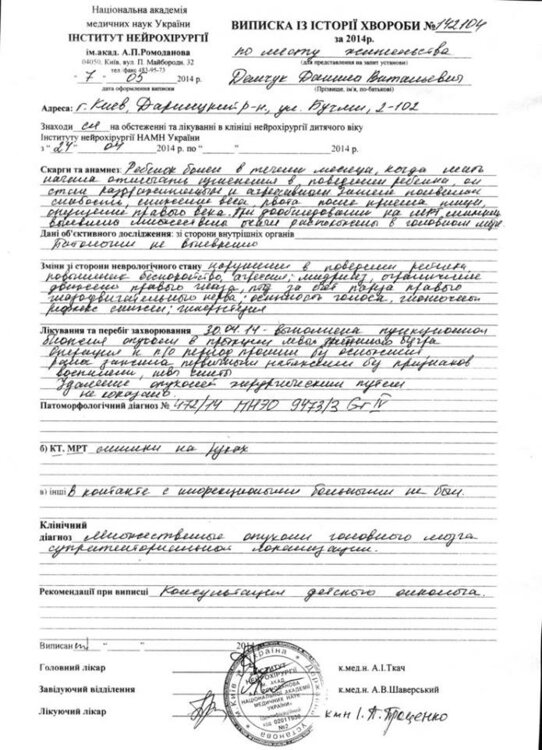 Національна академія
медичних наук України
ІНСТИТУТ НЕЙРОХІРУРГІЇ
ім.акад. А.П.Ромоданова
04050, Київ, вул. П. Майбороди, 32
тел./факс 483-95-73
" 7 " 05 2014 р.
дата оформлення виписки
ВИПИСКА ІЗ ІСТОРІЇ ХВОРОБИ № 142104
за 2014р.
по месту жительства
(для представлення на запит установи)
Демчук Данило Витальевич
(Прізвище, ім'я, по-батькові)
Адреса: г. Киев, Дарницкий р-н, ул. Бучми, 2-102
Знаходи ся на обстеженні та лікуванні в клініці нейрохірургії дитячого віку
Інституту нейрохірургії НАМН України
з " 24 " 04 2014 р. по " " 2014 р.
Скарги та анамнез: Ребенок болен в течении месяца, когда мать
начала отмечать изменения в поведении ребенка, он
стал раздражительным и агрессивным. Затем появилась
слабость, снижение веса, рвота после приема пищи,
опущение правого века. При дообследовании на МРТ
выявлено множество очагов расположены в головном мозге
Дані об'єктивного дослідження: зі сторони внутрішніх органів
Патологии не выявлено
Зміни зі сторони неврологічного стану нарушения в поведении ребенка
повышенное беспокойство, агрессия; мидриаз, ограничение
движений правого глаза, за счет пареза правого
глазодвигательного нерва; осиплость голоса, глоточный
рефлекс снижен;
Лікування та перебіг захворювання 30.04.14 - выполнена пункционная
биопсия опухоли в проекции левого зрительного бугра
Операция и п/о период прошли без осложнений
Рана зажила первичным натяжением без признаков
воспаления, швы сняты
Удаление опухолей хирургическим путем
не показано.
Патоморфологічний діагноз № 472/14 МНЭО 9473/3 Gr IV
б) КТ. МРТ снимки на руках
в) інші В контакте с инфекционными больными не был.
Клінічний
діагноз Множественные опухоли головного мозга
супратенториальной локализации.
Рекомендації при виписці Консультация детского онколога.
Виписан " " 2014
Головний лікар к.мед.н. А.І.Ткач
Завідуючий відділення к.мед.н. А.В.Шаверський
Лікуючий лікар кмн І.П. Проценко
ІНСТИТУТ
НЕЙРОХІРУРГІЇ
НАЦІОНАЛЬНОЇ АКАДЕМІЇ
МЕДИЧНИХ НАУК
УКРАЇНИ
№2